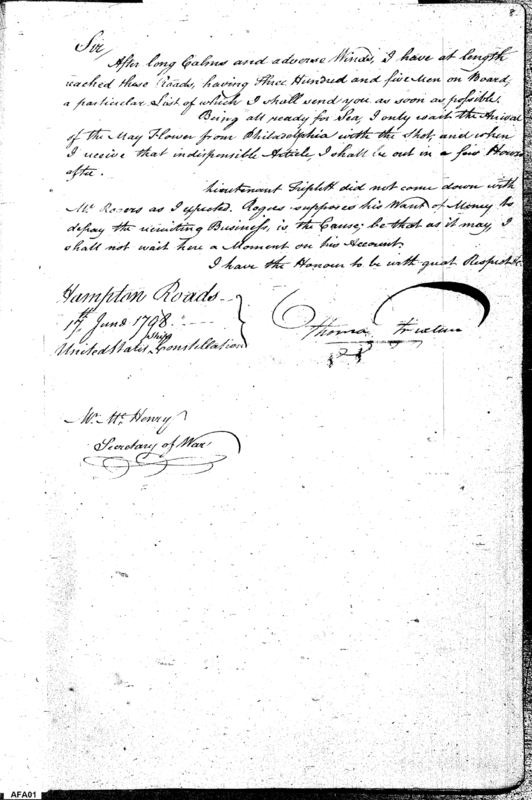 8
Sir,
After long Calms and adverse Winds, I have at length
reached these Roads, having Three Hundred and five Men on Board,
a particular List of which I shall send you as soon as possible.
Being all ready for Sea, I only wait the Arrival
of the May Flower from Philadelphia with the Shot, and when
I receive that indispensible Article, I shall be out in a few Hours
after.
Lieutenant Triplett did not come down with
Mr. Rogers as I expected. Rogers supposes his Want of Money to
defray the recruiting Business, is the Cause; be that as it may I
shall not wait here a Moment on his Account.
I have the Honour to be with great Respect &c
Hampton Roads
17th June 1798.
United States Ship Constellation
Thomas Truxtun
Mr. McHenry
Secretary of War
AFA01